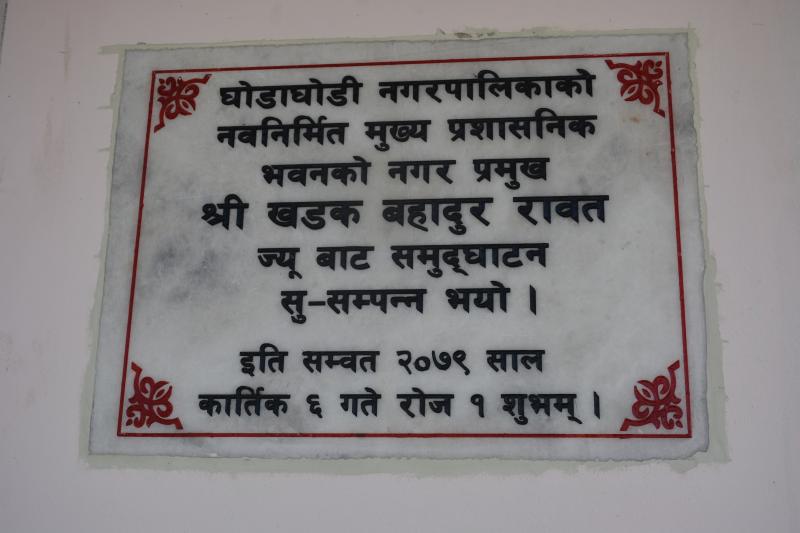 घोडाघोडी नगरपालिकाको
नवनिर्मित मुख्य प्रशासनिक
भवनको नगर प्रमुख
श्री खडक बहादुर रावत
ज्यू बाट समुद्‌घाटन
सु-सम्पन्न भयो ।
इति सम्वत २०७९ साल
कार्तिक ६ गते रोज १ शुभम् ।